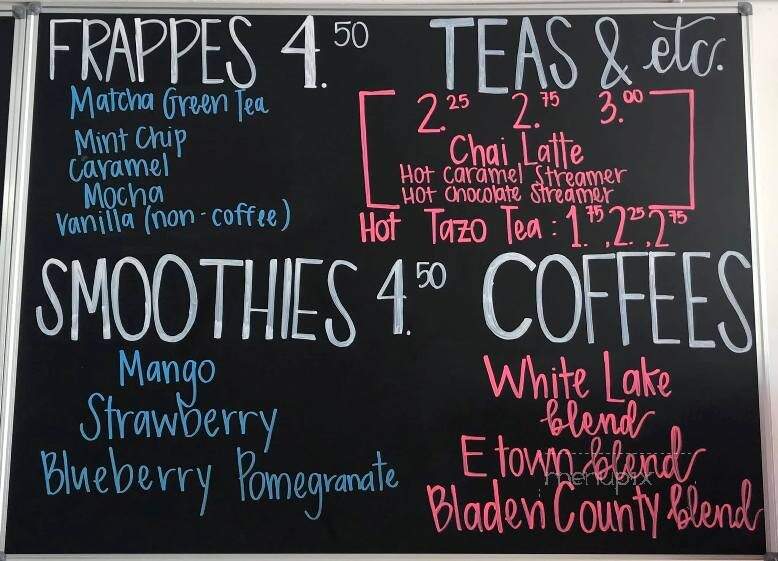 FRAPPES 4.50
Matcha Green Tea
Mint Chip
Caramel
Mocha
Vanilla (non-coffee)
TEAS & etc.
2.25 2.75 3.00
Chai Latte
Hot Caramel Streamer
Hot Chocolate Streamer
Hot Tazo Tea: 1.75, 2.25, 2.75
SMOOTHIES 4.50
Mango
Strawberry
Blueberry Pomegranate
COFFEES
White Lake
blend
Etown blend
Bladen County blend
menupix